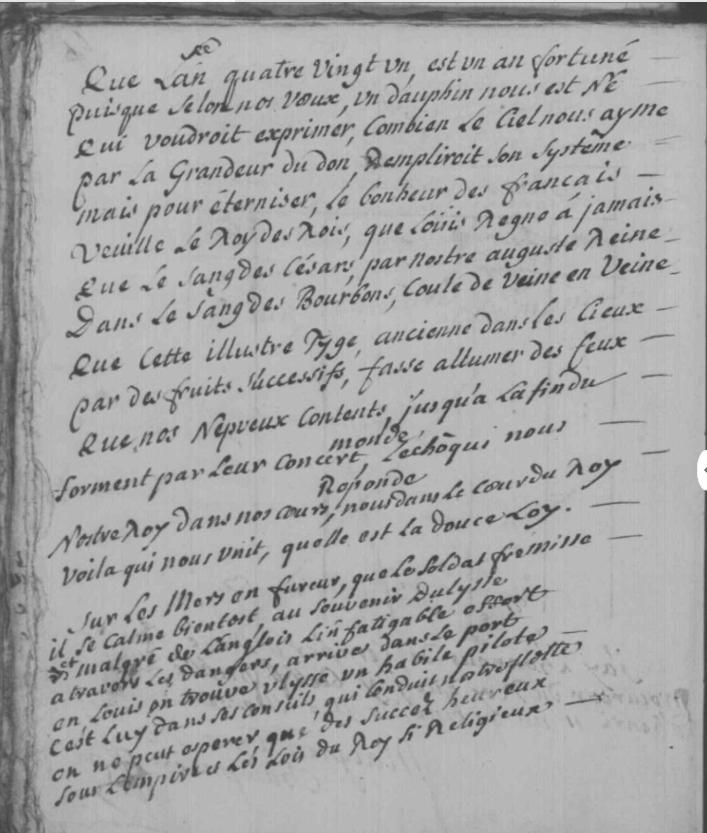 Que Lan quatre vingt vn, est vn an fortuné
puisque selon nos vœux, vn dauphin nous est Né
Qui voudroit exprimer, Combien Le Ciel nous ayme
par La Grandeur du don, Rempliroit son Systême
mais pour éterniser, Le bonheur des francais
Veuille Le Roy des Rois, que Loüis Regne á jamais
Que Le Sang des Césars, par nostre auguste Reine
Dans Le Sang des Bourbons, Coule de Veine en Veine
Que Cette illustre Tyge, ancienne dans les Cieux
par des fruits Successifs, fasse allumer des feux
Que nos Nepveux Contents, jusqu'a La fin du
monde,
forment par Leur Concert, Lecho qui nous
Reponde
Nostre Roy dans nos cœurs, nous dans Le Cœur du Roy
Voila qui nous Vnit, quelle est La douce Loy.
Sur Les Mers en fureur, que Le Soldat fremisse
il Se Calme bientost, au Souvenir Dulysse
et malgré de Langlois Linfatigable effort
a travers Les dangers, arrive dans Le port
en Louis on trouve vlysse vn habile pilote
C'est Luy dans ses Conseils, qui Conduit nostre flotte
on ne peut esperer que des Succez heureux
sous L'empire et Les Lois du Roy si Religieux